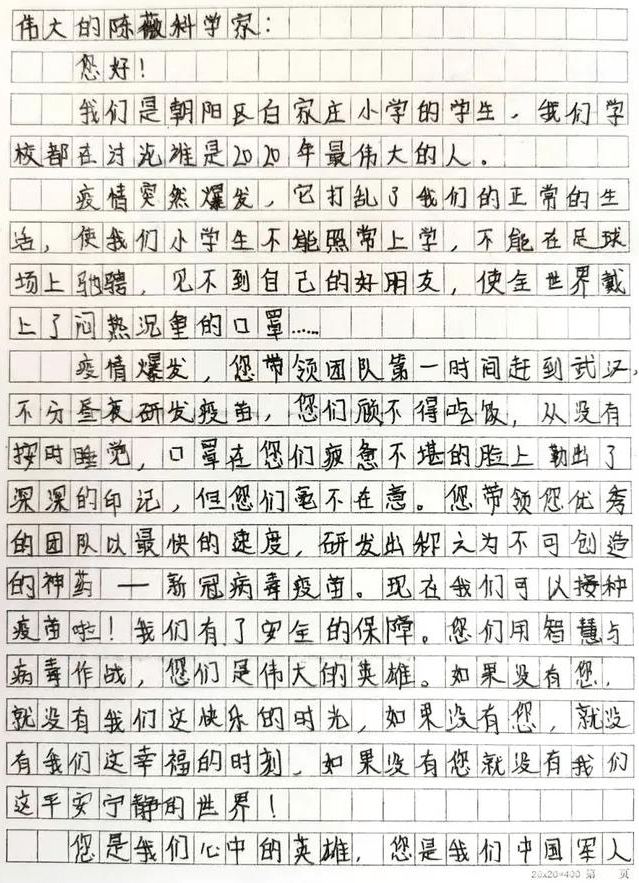 伟大的陈薇科学家:
您好!
我们是朝阳区白家庄小学的学生,我们学
校都在讨论谁是2020年最伟大的人。
疫情突然爆发,它打乱了我们的正常的生
活,使我们小学生不能照常上学,不能在足球
场上驰骋,见不到自己的好朋友,使全世界戴
上了闷热沉重的口罩……
疫情爆发,您带领团队第一时间赶到武汉,
不分昼夜研发疫苗,您们顾不得吃饭,从没有
按时睡觉,口罩在您们疲惫不堪的脸上勒出了
深深的印记,但您们毫不在意。您带领您优秀
的团队以最快的速度,研发出称之为不可创造
的神药——新冠病毒疫苗。现在我们可以接种
疫苗啦!我们有了安全的保障。您们用智慧与
病毒作战,您们是伟大的英雄。如果没有您,
就没有我们这快乐的时光,如果没有您,就没
有我们这幸福的时刻,如果没有您就没有我们
这平安宁静的世界!
您是我们心中的英雄,您是我们中国军人
20×20=400 第 页